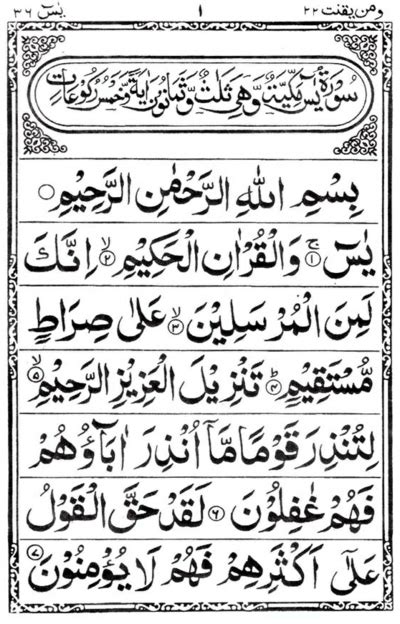 ومن یقنت ٢٢ ١ یٰسٓ ٣٦
سُوْرَةُ یٰسٓ مَكِّیَّةٌ وَّهِیَ ثَلٰثٌ وَّثَمَانُوْنَ اٰیَةً وَّخَمْسُ رُكُوْعَاتٍ
بِسْمِ اللهِ الرَّحْمٰنِ الرَّحِیْمِ ○
یٰسٓ ۚ﴿١﴾ وَالْقُرْاٰنِ الْحَكِیْمِ ۙ﴿٢﴾ اِنَّكَ
لَمِنَ الْمُرْسَلِیْنَ ۙ﴿٣﴾ عَلٰی صِرَاطٍ
مُّسْتَقِیْمٍ ؕ﴿٤﴾ تَنْزِیْلَ الْعَزِیْزِ الرَّحِیْمِ ۙ﴿٥﴾
لِتُنْذِرَ قَوْمًا مَّاۤ اُنْذِرَ اٰبَآؤُهُمْ
فَهُمْ غٰفِلُوْنَ ﴿٦﴾ لَقَدْ حَقَّ الْقَوْلُ
عَلٰۤی اَكْثَرِهِمْ فَهُمْ لَا یُؤْمِنُوْنَ ﴿٧﴾